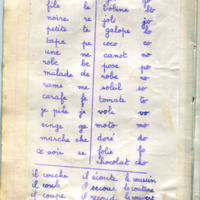 file le bobine bo
noire re joli jo
petite te galope lo
tape pe coco co
une ne canot no
robe be pose po
malade de robe ro
rame me soleil so
carafe fe tomate to
je pile je vole vo
singe ge moto mo
marche che doré do
ce soir ce folie fo
chocolat cho
il couche il écoute le cousin
il coule il secoue la couture
il coupe il recoud le couvert